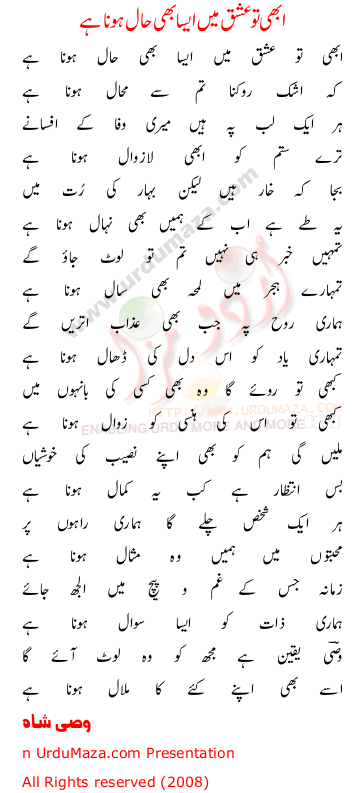 ابھی تو عشق میں ایسا بھی حال ہونا ہے
ابھی تو عشق میں ایسا بھی حال ہونا ہے
کہ اشک روکنا تم سے محال ہونا ہے
ہر ایک لب پہ ہیں میری وفا کے افسانے
ترے ستم کو ابھی لازوال ہونا ہے
بجا کہ خار ہیں لیکن بہار کی رُت میں
یہ طے ہے اب کے ہمیں بھی نہال ہونا ہے
تمہیں خبر ہی نہیں تم تو لوٹ جاؤ گے
تمہارے ہجر میں لمحہ بھی سال ہونا ہے
ہماری روح پہ جب بھی عذاب اتریں گے
تمہاری یاد کو اس دل کی ڈھال ہونا ہے
کبھی تو روئے گا وہ بھی کسی کی بانہوں میں
کبھی تو اس کی ہنسی کو زوال ہونا ہے
ملیں گی ہم کو بھی اپنے نصیب کی خوشیاں
بس انتظار ہے کب یہ کمال ہونا ہے
ہر ایک شخص چلے گا ہماری راہوں پر
محبتوں میں ہمیں وہ مثال ہونا ہے
زمانہ جس کے غم و پیچ میں الجھ جائے
ہماری ذات کو ایسا سوال ہونا ہے
وصیؔ یقین ہے مجھ کو وہ لوٹ آئے گا
اسے بھی اپنے کئے کا ملال ہونا ہے
وصی شاہ
n UrduMaza.com Presentation
All Rights reserved (2008)
www.urdumaza.com
اردو مزا
WWW.URDUMAZA.COM
ENABLING URDU MORE AND MORE